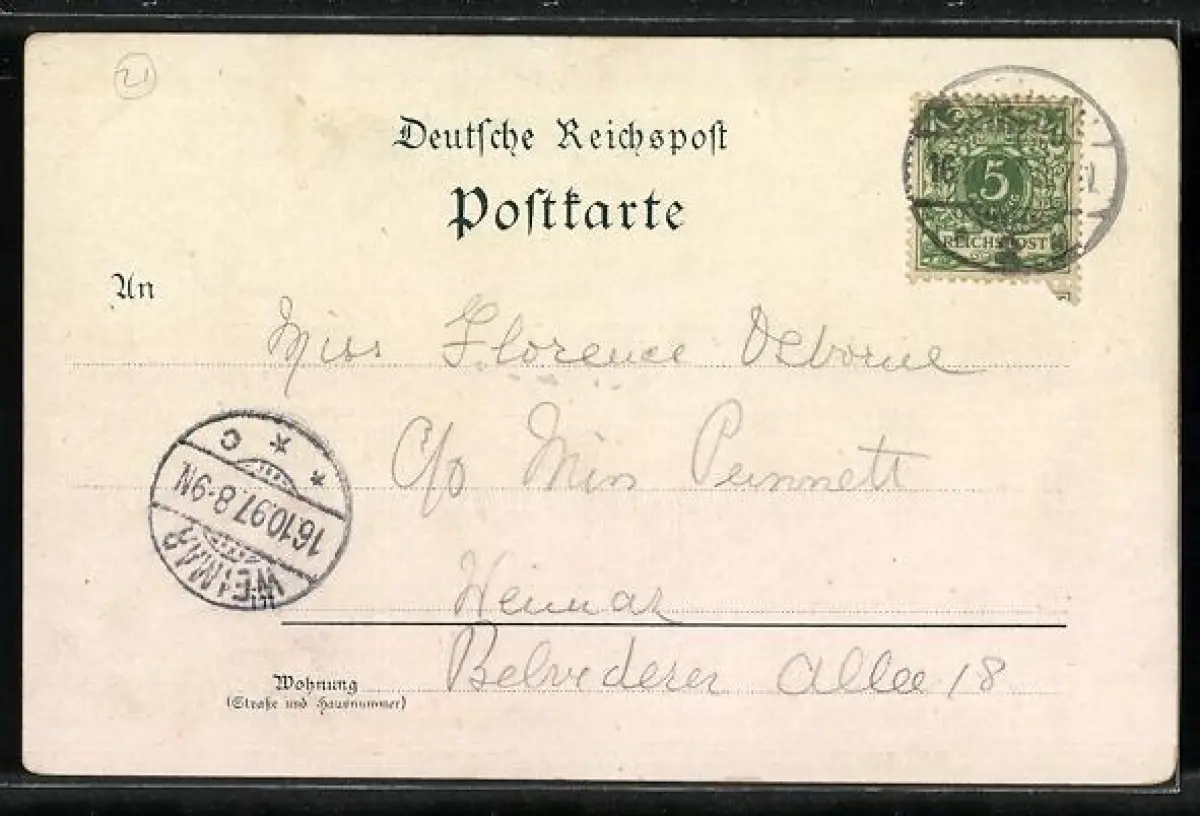 21
Deutsche Reichspost
Postkarte
5
REICHSPOST
16
An
Miss Florence Osborne
c/o Miss Pinnett
Weimar
Belvederer Allee 18
Wohnung
(Straße und Hausnummer)
WEIMAR
16.10.97. 8-9N
* * C